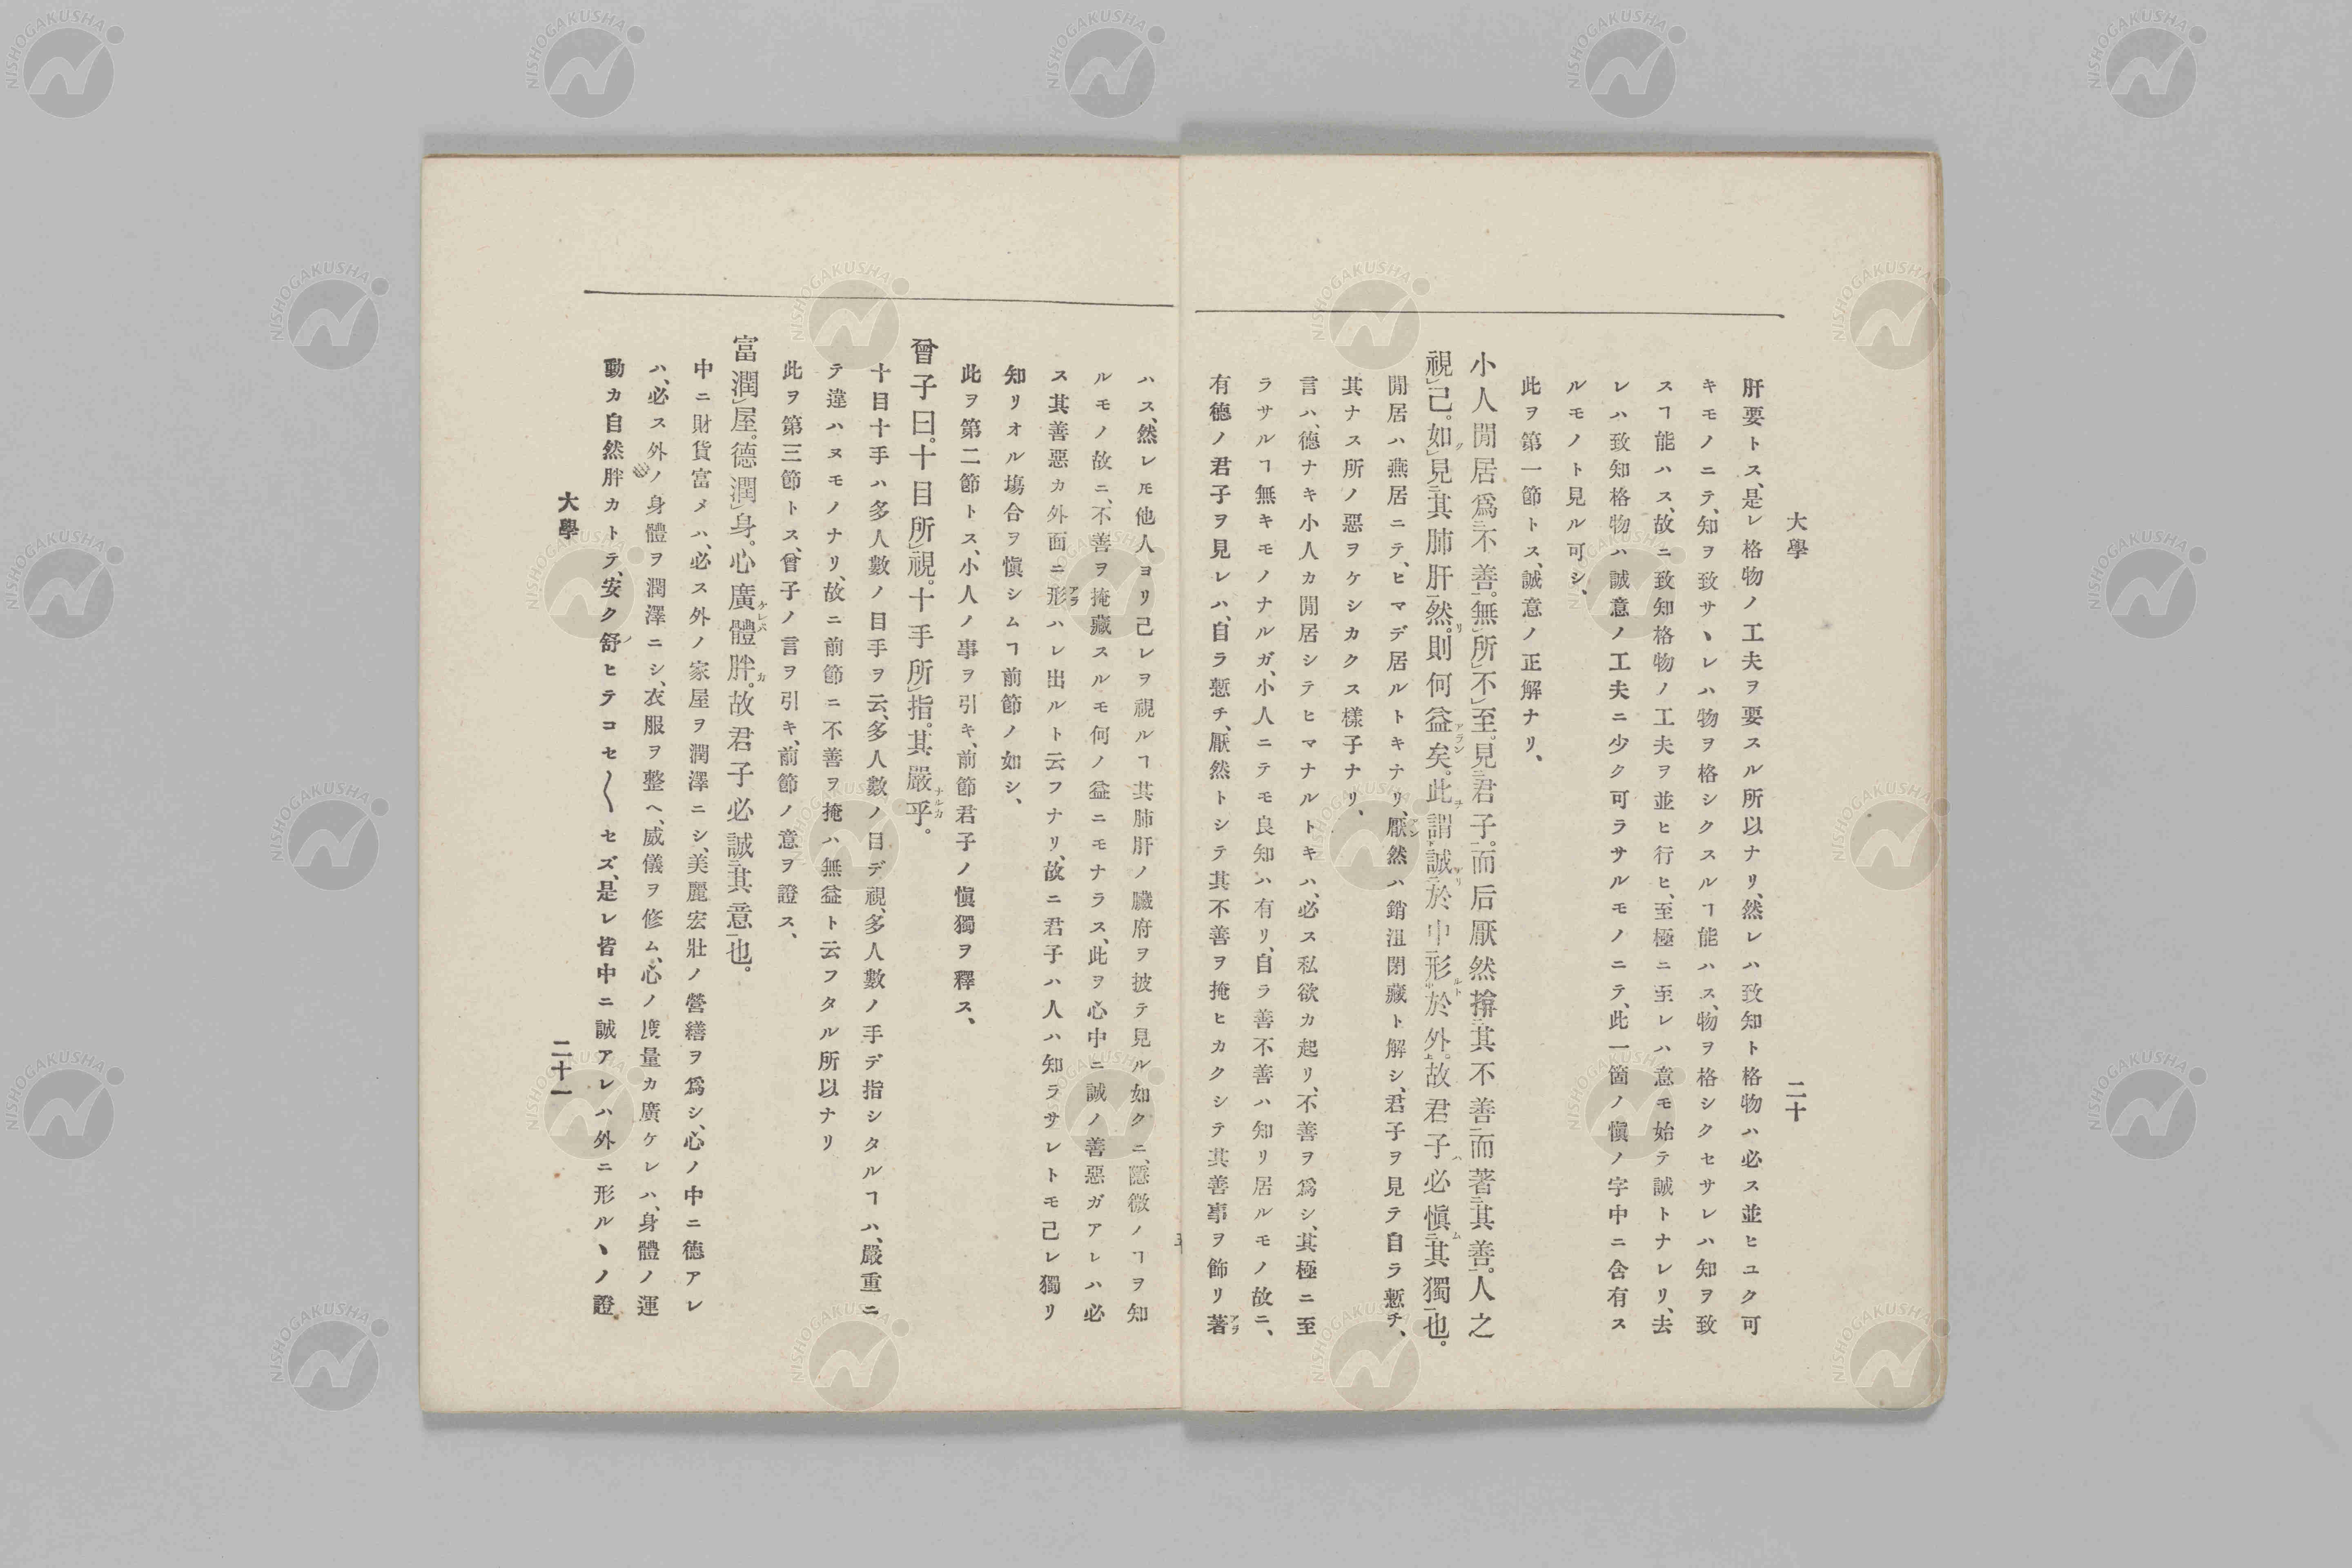 大學
二十
肝要トス、是レ格物ノ工夫ヲ要スル所以ナリ、然レハ致知ト格物ハ必ス並ヒユク可
キモノニテ、知ヲ致サヽレハ物ヲ格シクスルヿ能ハス、物ヲ格シクセサレハ知ヲ致
スヿ能ハス、故ニ致知格物ノ工夫ヲ並ヒ行ヒ、至極ニ至レハ意モ始テ誠トナレリ、去
レハ致知格物ハ誠意ノ工夫ニ少ク可ラサルモノニテ、此一箇ノ愼ノ字中ニ含有ス
ルモノト見ル可シ、
此ヲ第一節トス、誠意ノ正解ナリ、
小人閒居爲㆓不善㆒。無㆑所㆑不㆑至。見㆓君子㆒。而后厭然揜㆓其不善㆒而著㆓其善㆒。人之
視㆑己。如㆑ク見㆓其肺肝㆒然。リ則何益アラン矣。此ヲ謂㆘誠アリ㆓於中㆒形ルト㆗於外㆖。故君子ハ必愼ム㆓其獨㆒也。
閒居ハ燕居ニテ、ヒマデ居ルトキナリ、厭アン然ハ銷沮閉藏ト解シ、君子ヲ見テ自ラ慙チ、
其ナス所ノ惡ヲケシカクス樣子ナリ、
言ハ、德ナキ小人カ閒居シテヒマナルトキハ、必ス私欲カ起リ、不善ヲ爲シ、其極ニ至
ラサルヿ無キモノナルガ、小人ニテモ良知ハ有リ、自ラ善不善ハ知リ居ルモノ故ニ、
有德ノ君子ヲ見レハ、自ラ慙チ、厭然トシテ其不善ヲ掩ヒカクシテ其善事ヲ飾リ著アラ
ハス、然レ𪜈他人ヨリ己レヲ視ルヿ其肺肝ノ臟府ヲ披テ見ル如クニ、隱微ノヿヲ知
ルモノ故ニ、不善ヲ掩藏スルモ何ノ益ニモナラス、此ヲ心中ニ誠ノ善惡ガアレハ必
ス其善惡カ外面ニ形アラハレ出ルト云フナリ、故ニ君子ハ人ハ知ラサレトモ己レ獨リ
知リオル塲合ヲ愼シムヿ前節ノ如シ、
此ヲ第二節トス、小人ノ事ヲ引キ、前節君子ノ愼獨ヲ釋ス、
曾子曰。十目所㆑視。十手所㆑指。其嚴ナルカ乎。
十目十手ハ多人數ノ目手ヲ云、多人數ノ目デ視、多人數ノ手デ指シタルヿハ、嚴重ニ
テ違ハヌモノナリ、故ニ前節ニ不善ヲ掩ハ無益ト云フタル所以ナリ
此ヲ第三節トス、曾子ノ言ヲ引キ、前節ノ意ヲ證ス、
富潤㆑屋。德潤㆑身。心廣ケレハ體胖カ。故君子必誠㆓其意㆒也。
中ニ財貨富メハ、必ス外ノ家屋ヲ潤澤ニシ、美麗宏壯ノ營繕ヲ爲シ、心ノ中ニ德アレ
ハ、必ス外ノ身體ヲ潤澤ニシ、衣服ヲ整ヘ、威儀ヲ修ム、心ノ度量カ廣ケレハ、身體ノ運
動カ自然胖カトテ、安ク舒ノヒテコセ〱セズ、是レ皆中ニ誠アレハ外ニ形ルヽノ證
大學
二十一
NISHOGAKUSHA